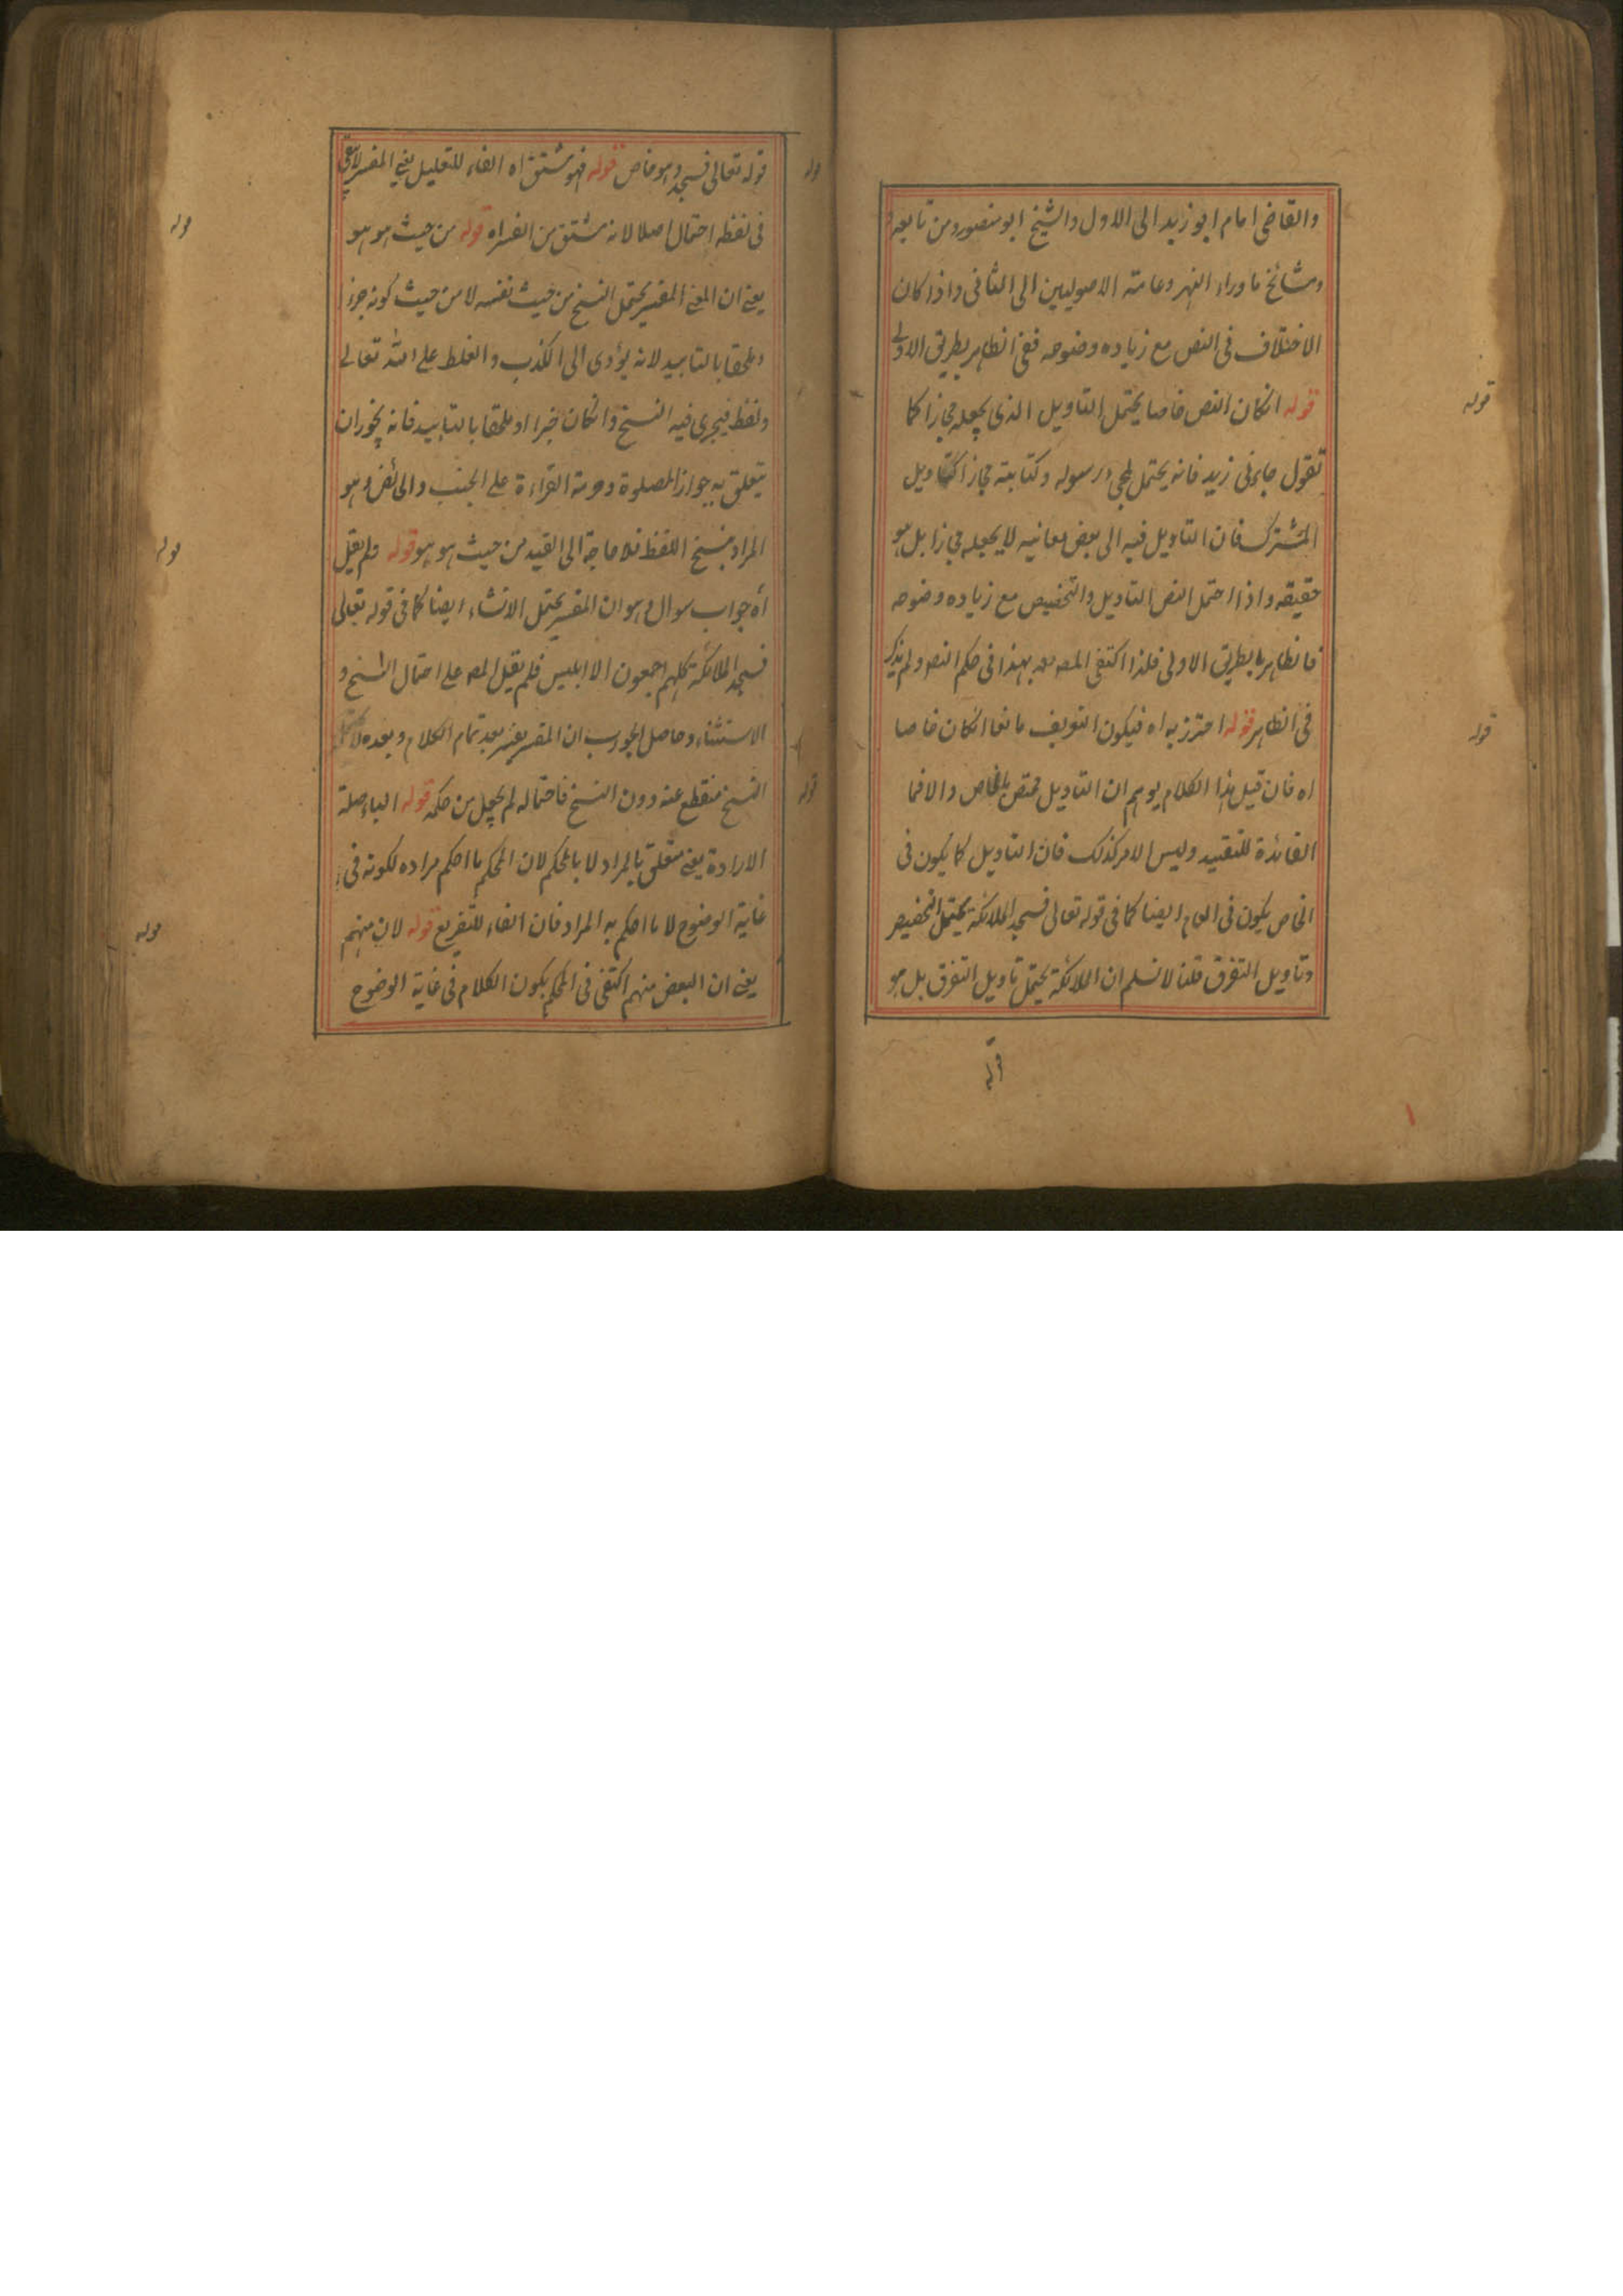 والقاضى امام ابو زيد الى الاول والشيخ ابو منصور ومن تابعه
ومشائخ ما وراء النهر وعامة الاصوليين الى الثانى واذا كان
الاختلاف فى النص مع زياده وضوحه ففى الظاهر بطريق الاولى
قوله انكان النص خاصا يحتمل التاويل الذى يجعله مجازا كما
تقول جاءنى زيد فانه يحتمل مجى رسوله وكتابته مجازا كتاويل
المشترك فان التاويل فيه الى بعض معانيه لا يجعله مجازا بل هو
حقيقة واذا احتمل النص التاويل والتخصيص مع زياده وضوحه
فالظاهر بالطريق الاولى فلذا اكتفى المصـ بهذا فى حكم النص ولم يذكر
فى الظاهر قوله احترز به اه فيكون التعريف مانعا انكان خاصا
اه فان قيل هذا الكلام يوهم ان التاويل مختص بالخاص والا فما
الفائدة للتقييد وليس الامر كذلك فان التاويل كما يكون فى
الخاص يكون فى العام ايضا كما فى قوله تعالى فسجد الملائكة يحتمل التخصيص
وتاويل التفرق قلنا لا نسلم ان الملائكة يحتمل تاويل التفرق بل هو
قوله
قوله
قوله
قوله تعالى فسجد وهو خاص قوله فهو مشتق اه الفاء للتعليل يعنى المفسر لا يبقى
فى لفظه احتمال اصلا لانه مشتق من الفسر اه قوله من حيث هو هو
يعنى ان المعنى المفسر يحتمل النسخ من حيث نفسه لا من حيث كونه خبرا
وملحقا بالتابيد لانه يؤدى الى الكذب والغلط على الله تعالى
ولفظ فيجرى فيه النسخ وانكان خبرا او ملحقا بالتابيد فانه يجوز ان
يتعلق به جواز الصلوة وحرمة القراءة على الجنب والحائض وهو
المراد بنسخ اللفظ فلا حاجة الى القيد من حيث هو هو قوله ولم يقل
اه جواب سوال وهو ان المفسر يحتمل الاستثناء ايضا كما فى قوله تعالى
فسجد الملائكة كلهم اجمعون الا ابليس فلم يقل المصـ على احتمال النسخ و
الاستثناء وحاصل الجواب ان المفسر يعتبر بعد تمام الكلام وبعده
النسخ منقطع عنه دون النسخ فاحتماله لم يجعل من حكمه قوله الباء صلة
الارادة يعنى متعلق بالمراد لا بالمحكم لان المحكم ما احكم مراده لكونه فى
غاية الوضوح لا ما احكم به المراد فان الفاء للتفريع قوله لان منهم
يعنى ان البعض منهم اكتفى فى المحكم بكون الكلام فى غاية الوضوح
قوله
قوله
قوله
قوله
قوله